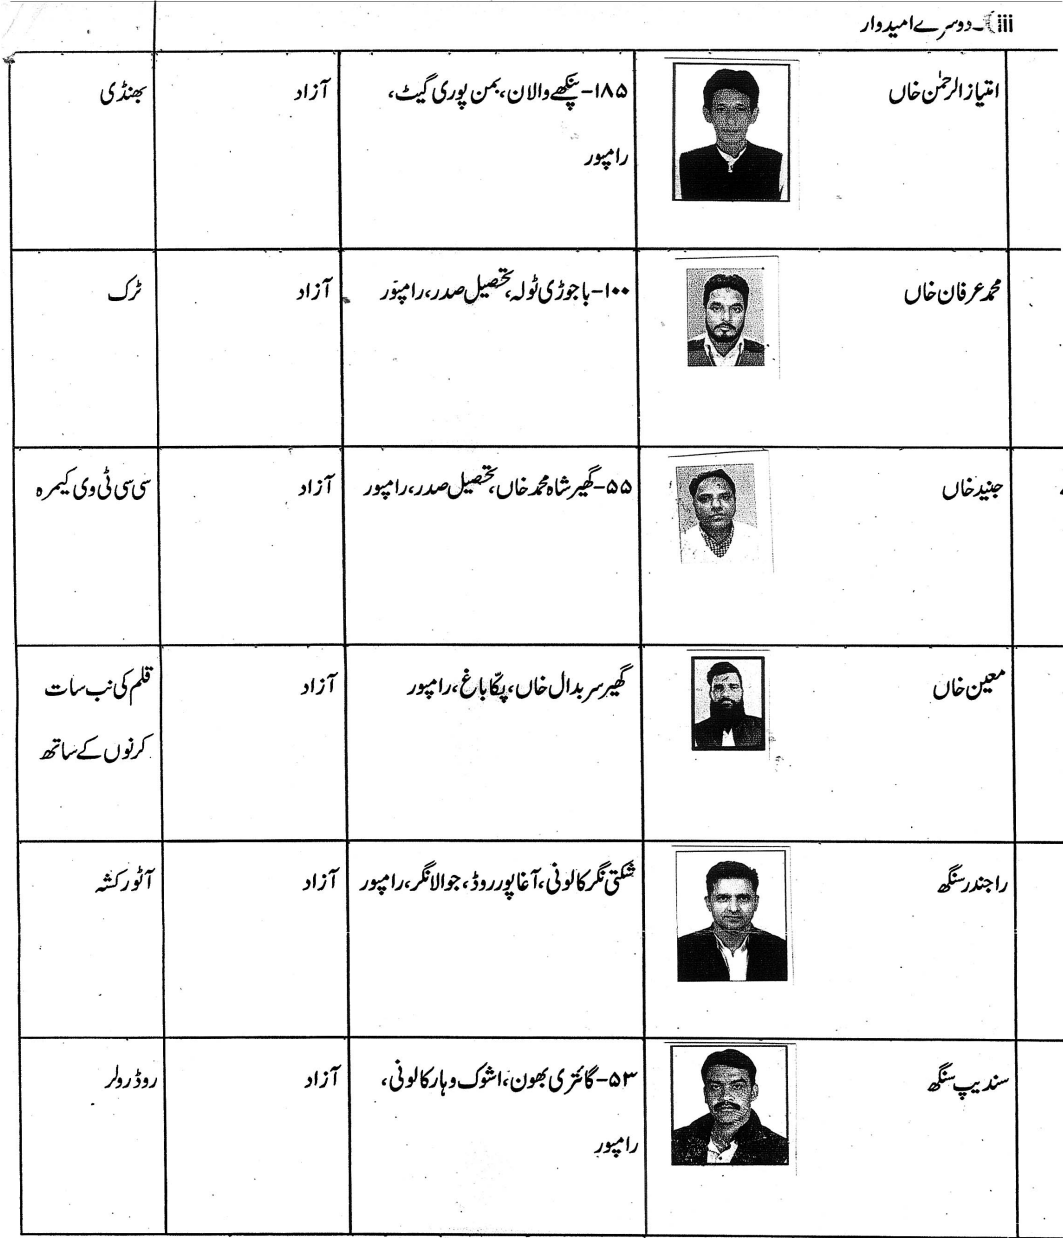 iii)۔ دوسرے امیدوار
امتیاز الرحمٰن خاں
۱۸۵- پنکھے والان، بمن پوری گیٹ،
رامپور
آزاد
بھنڈی
محمد عرفان خاں
۱۰۰- باجوڑی ٹولہ، تحصیل صدر، رامپور
آزاد
ٹرک
جنید خاں
۵۵- گھیر شاہ محمد خاں، تحصیل صدر، رامپور
آزاد
سی سی ٹی وی کیمرہ
معین خاں
گھیر سر بدال خاں، پکّا باغ، رامپور
آزاد
قلم کی نب سات
کرنوں کے ساتھ
راجندر سنگھ
شکتی نگر کالونی، آغاپور روڈ، جوالانگر، رامپور
آزاد
آٹو رکشہ
سندیپ سنگھ
۵۳- گائتری بھون، اشوک وہار کالونی،
رامپور
آزاد
روڈ رولر